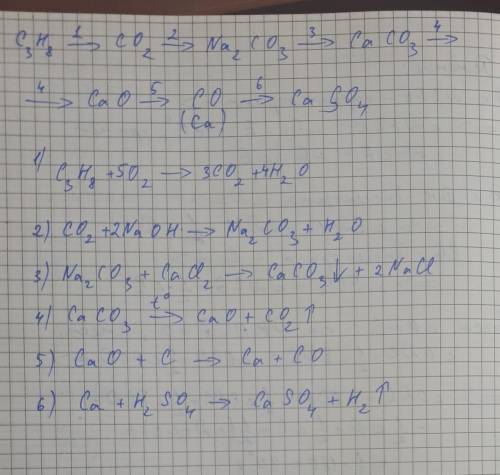 C₃H₈ →¹ CO₂ →² Na₂CO₃ →³ CaCO₃ →⁴
→⁴ CaO →⁵ CO →⁶ CaSO₄
(Ca)
1) C₃H₈ + 5O₂ → 3CO₂ + 4H₂O
2) CO₂ + 2NaOH → Na₂CO₃ + H₂O
3) Na₂CO₃ + CaCl₂ → CaCO₃↓ + 2NaCl
4) CaCO₃ →t° CaO + CO₂↑
5) CaO + C → Ca + CO
6) Ca + H₂SO₄ → CaSO₄ + H₂↑